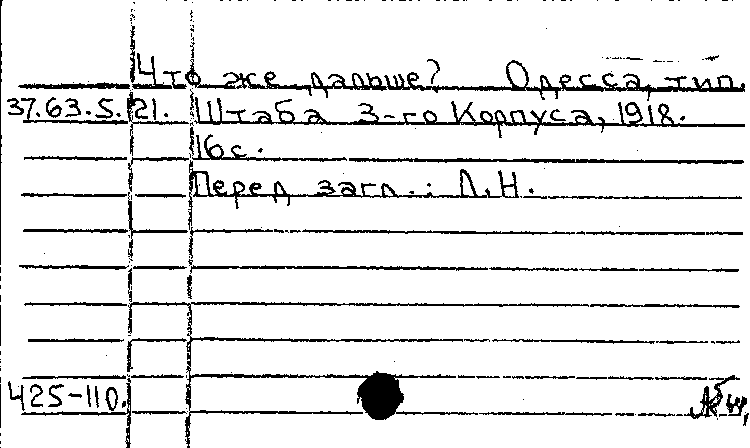 Что же дальше? Одесса, тип.
37.63.5.121. Штаба 3-го Корпуса, 1918.
16с.
Перед загл.: Л.Н.
425-110.